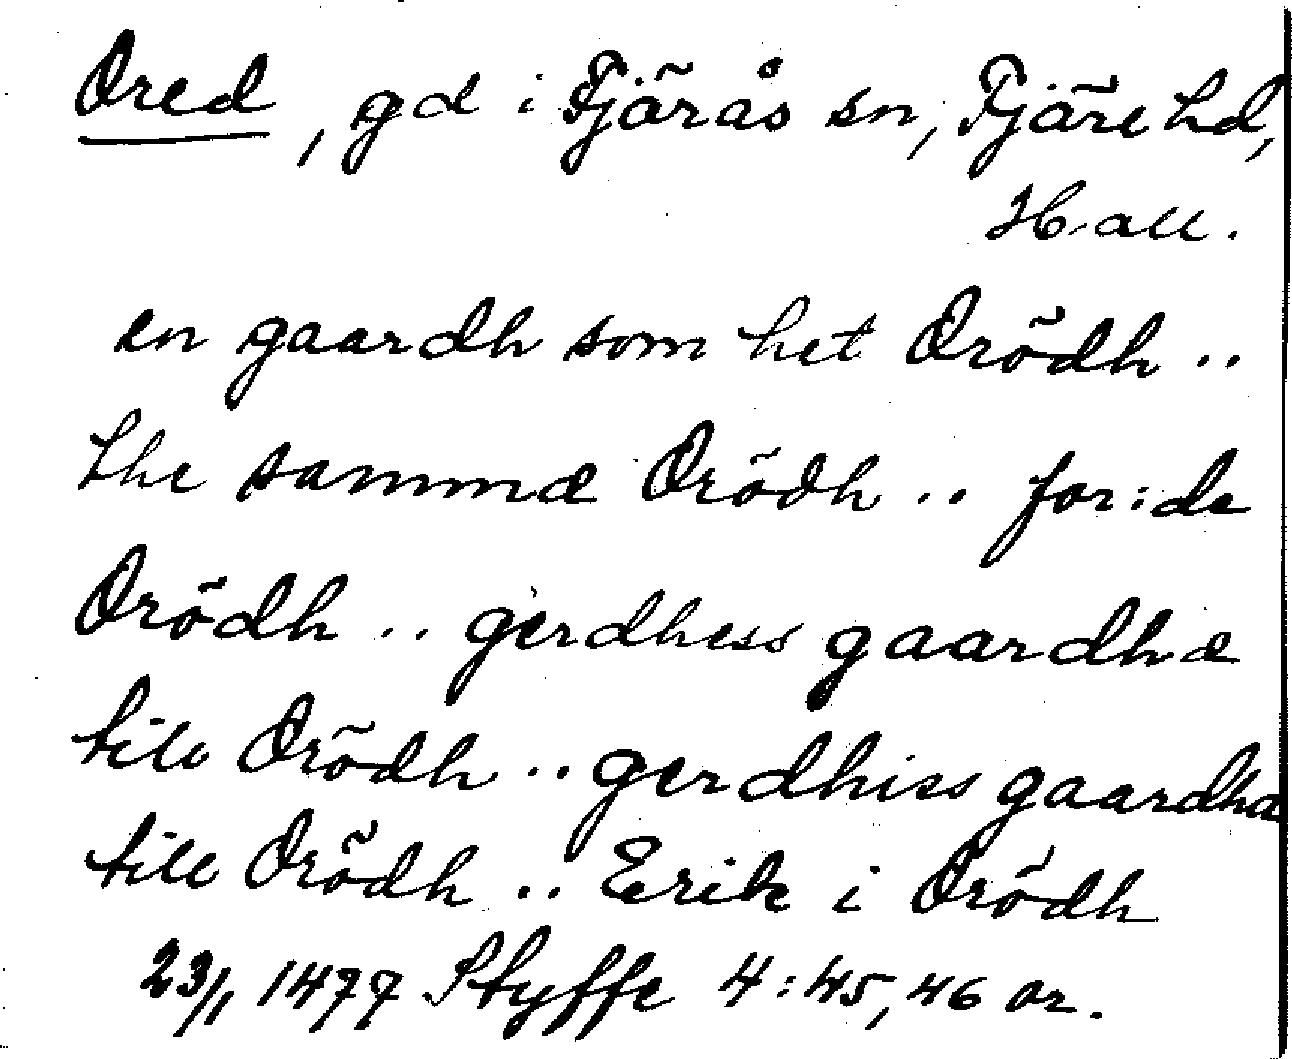 Ored, gd i Fjärås sn, Fjäre hd,
Hall.
en gaardh som het Orödh ..
the sammæ Orödh .. for:de
Orödh .. gerdhess gaardhæ
till Orödh .. gerdhiss gaardha
till Orödh .. Erik i Orödh
23/1 1477 Styffe 4:45, 46 or.